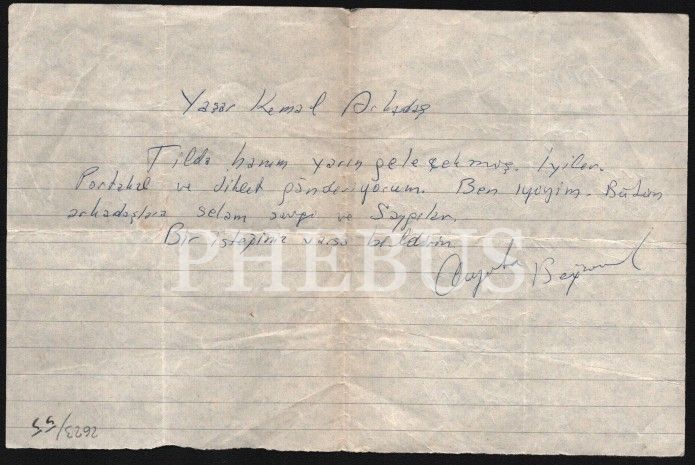 Yaşar Kemal Arkadaş
Tilda hanım yarın geleçekmiş. İyiler.
Portakal ve gönderiyorum. Ben iyiyim. Bütün
arkadaşlara selam sevgi ve Saygılar.
Bir isteğiniz varsa bildirin.
PHEBUS
2623/55